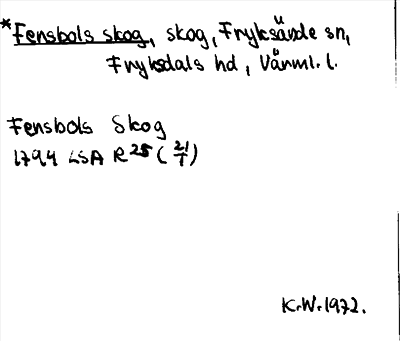 *Fensbols skog, skog, Fryksände sn,
Fryksdals hd, Värml. l.
Fensbols Skog
1794 LSA R25 (21/1)
K.W. 1972.